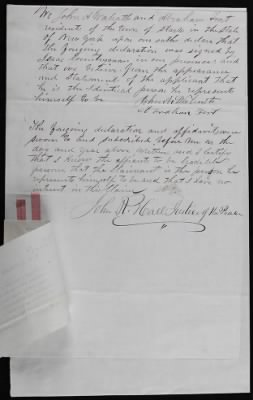 We John A Walrath and Abraham Fort
residents of the town of Stark in the State
of New York upon our oaths declare that
the foregoing declaration was signed by
Isaac in our presence and
that we believe from the appearance
and Statement of the applicant that
he is the Identical person he represents
himself to be John A Walrath
Abraham Fort
The foregoing declaration and affidavit were
sworn to and subscribed before me on the
day and year above written and I certify
that I know the affiants to be credible
persons that the claimant is the person he
represents himself to be and that I have no
interest in this Claim
John R. Hall Justice of the Peace